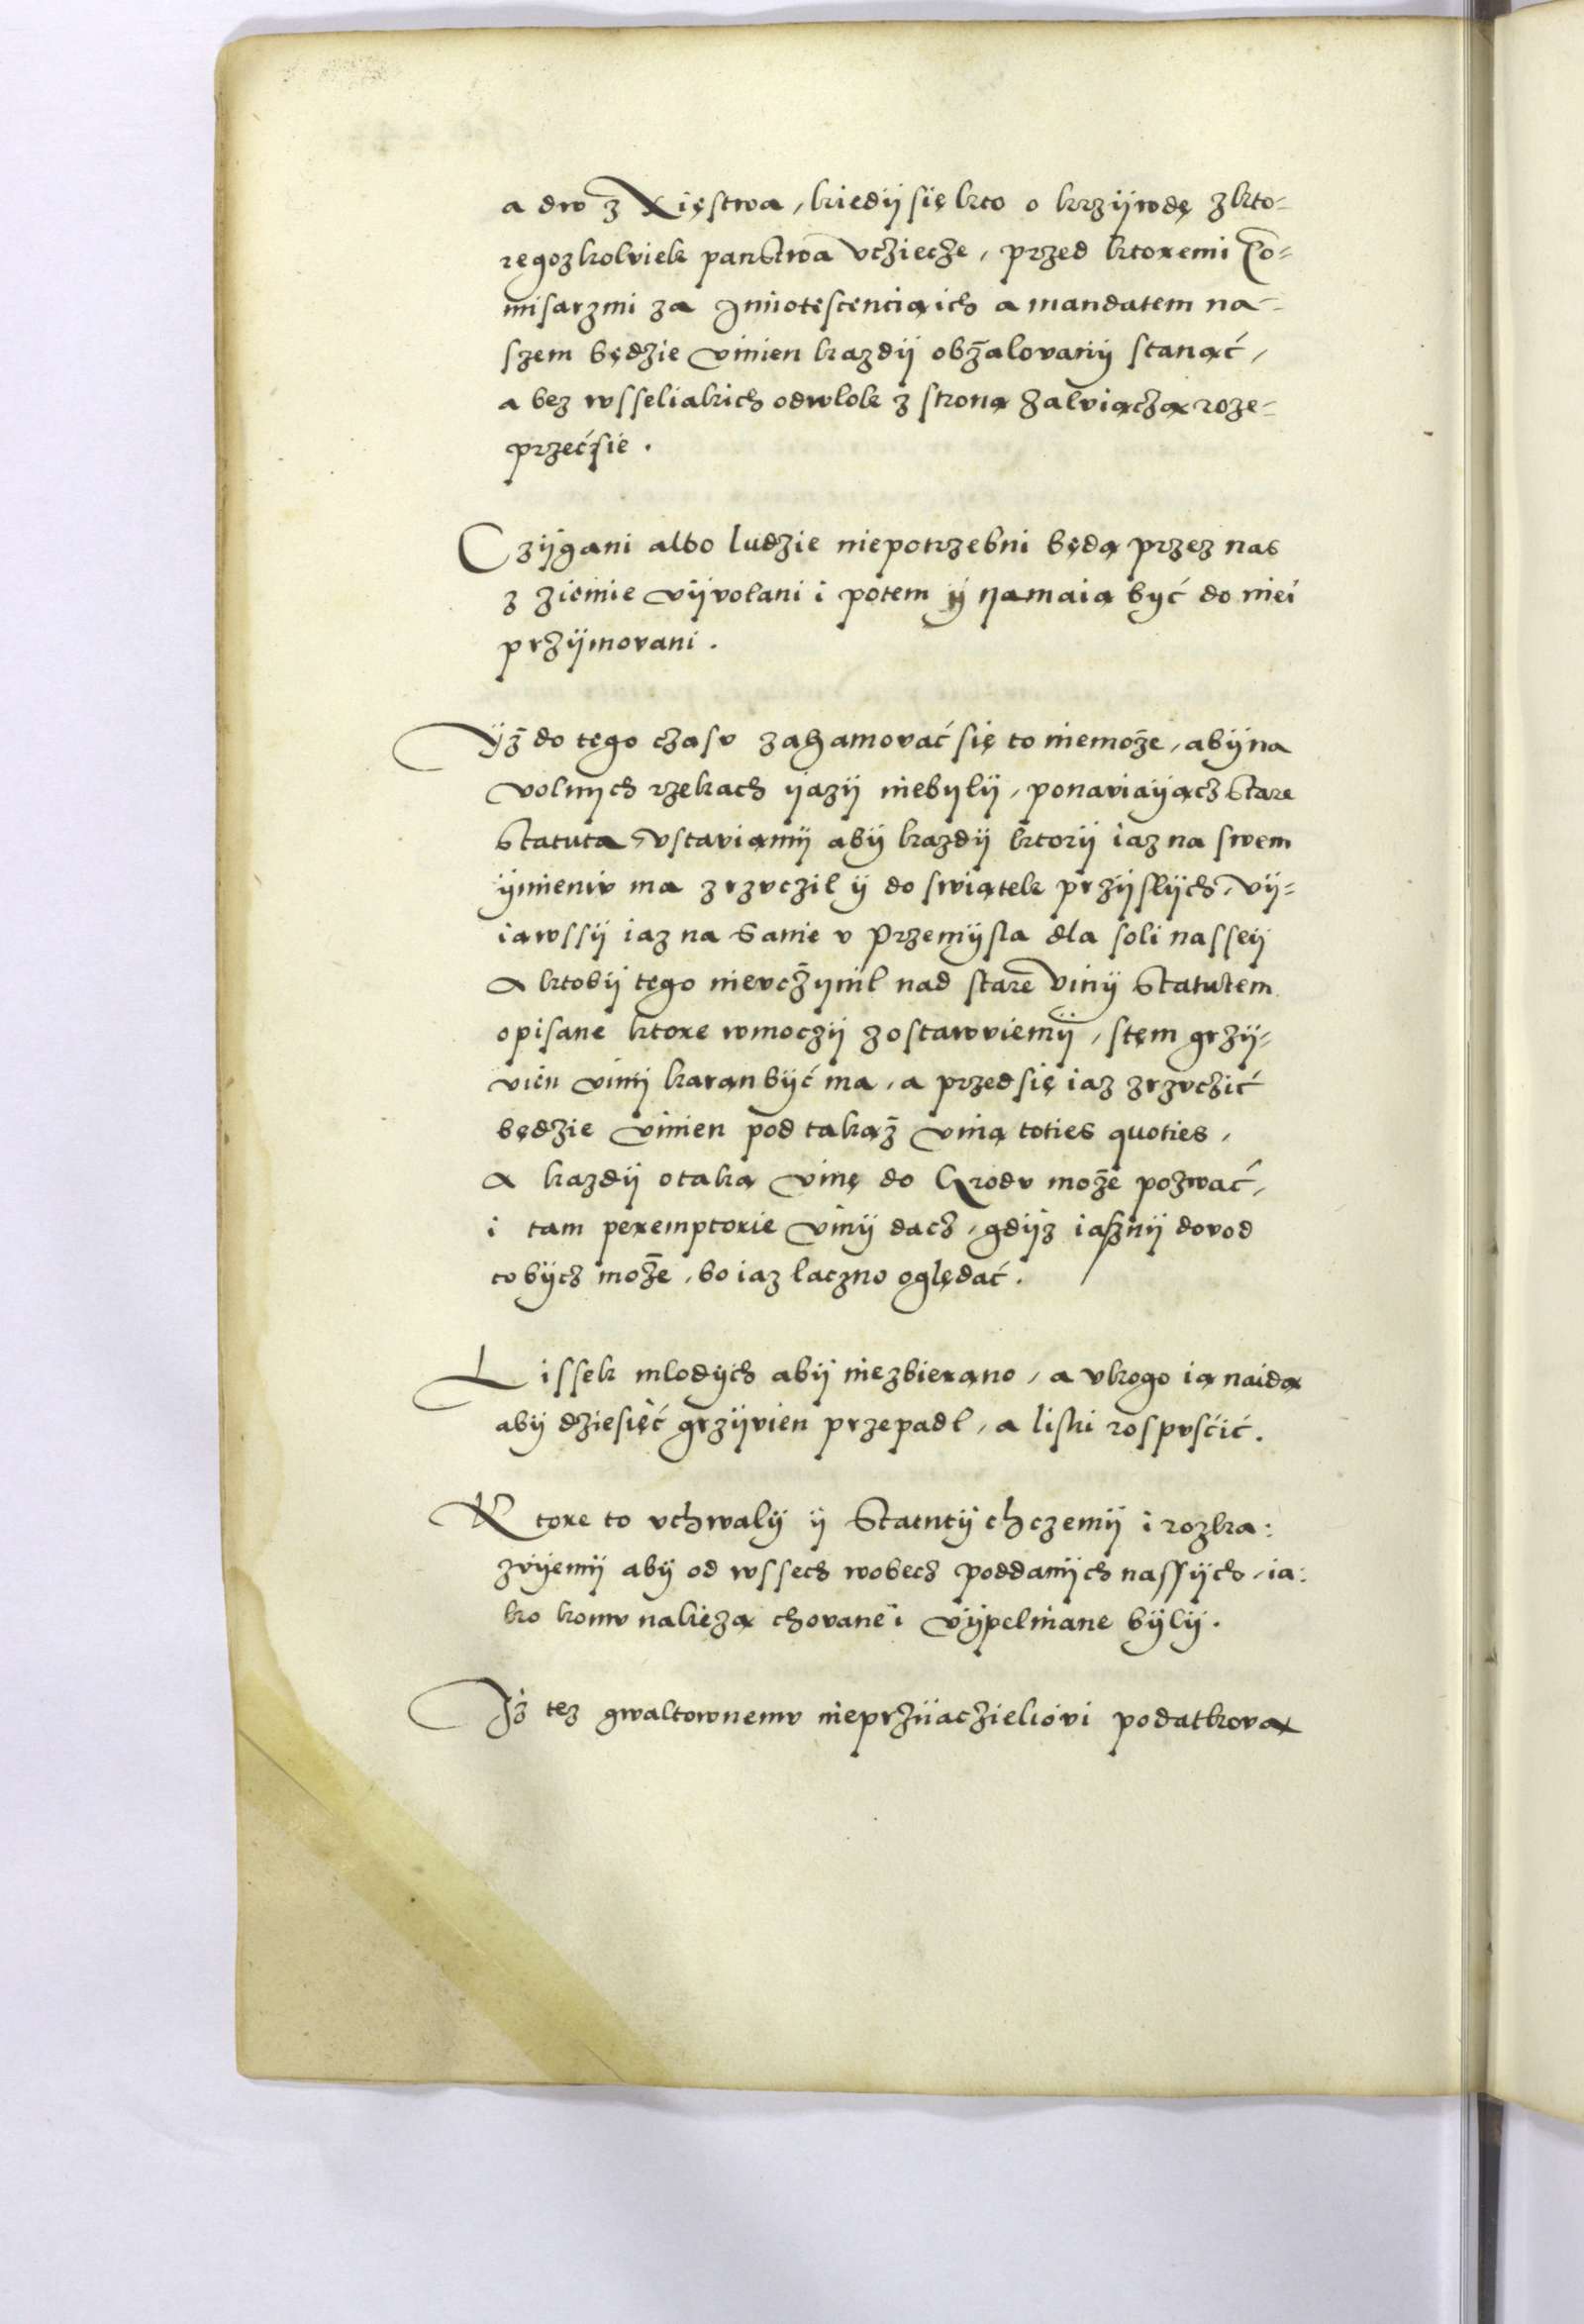 a dw z Xięstwa, kiedÿ się kto o krzÿwdę z kto-
regozkolviek panstwa vcziecze, przed ktoremi Co-
misarzmi za Innotescencią ich a mandatem na-
szem będzie vinien kazdÿ obżalovanÿ stanąć,
a bez wsseliakich odwlok z stroną zaluiączą roze-
przećsie.
Czÿgani albo ludzie niepotrzebni będą przez nas
z ziemie vÿvolani i potem ÿ namaią być do niei
przÿmovani.
Ÿż do tego czasv zahamovać się to niemoże, abÿ na
volnych rzekach ÿazÿ niebÿlÿ, ponaviaÿącz stare
Statuta, vstaviamÿ abÿ kazdÿ ktorÿ iaz na swem
ÿmieniv ma zrzvczil ÿ do swiątek przÿslÿch, vÿ-
iawssÿ iaz na Sanie v Przemÿsla dla soli nasseÿ
A ktobÿ tego nievczÿnil nad stare vinÿ Statutem
opisane ktore wmoczÿ zostawviemÿ, stem grzÿ-
vien vinÿ karan bÿć ma, a przedsię iaz zrzvczić
będzie vinien pod takąż viną toties quoties,
A kazdÿ otaką vinę do Grodv może pozwać,
i tam peremptorie vinÿ dacz, gdÿz iasznÿ dovod
to bÿcz może, bo iaz laczno oględać.
Lissek mlodÿch abÿ niezbierano, a vkogo ią naidą
abÿ dziesięć grzÿvien przepadl, a liski rospvścić.
Ktore to vchwalÿ ÿ Statutÿ chczemÿ i rozka:
zvÿemÿ abÿ od wssech wobecz poddanÿch nassÿch, ia:
ko komv nalieżą chovane i vÿpelniane bÿlÿ.
Iż tez gwaltownemv nieprzÿaczieliovi podatkovą